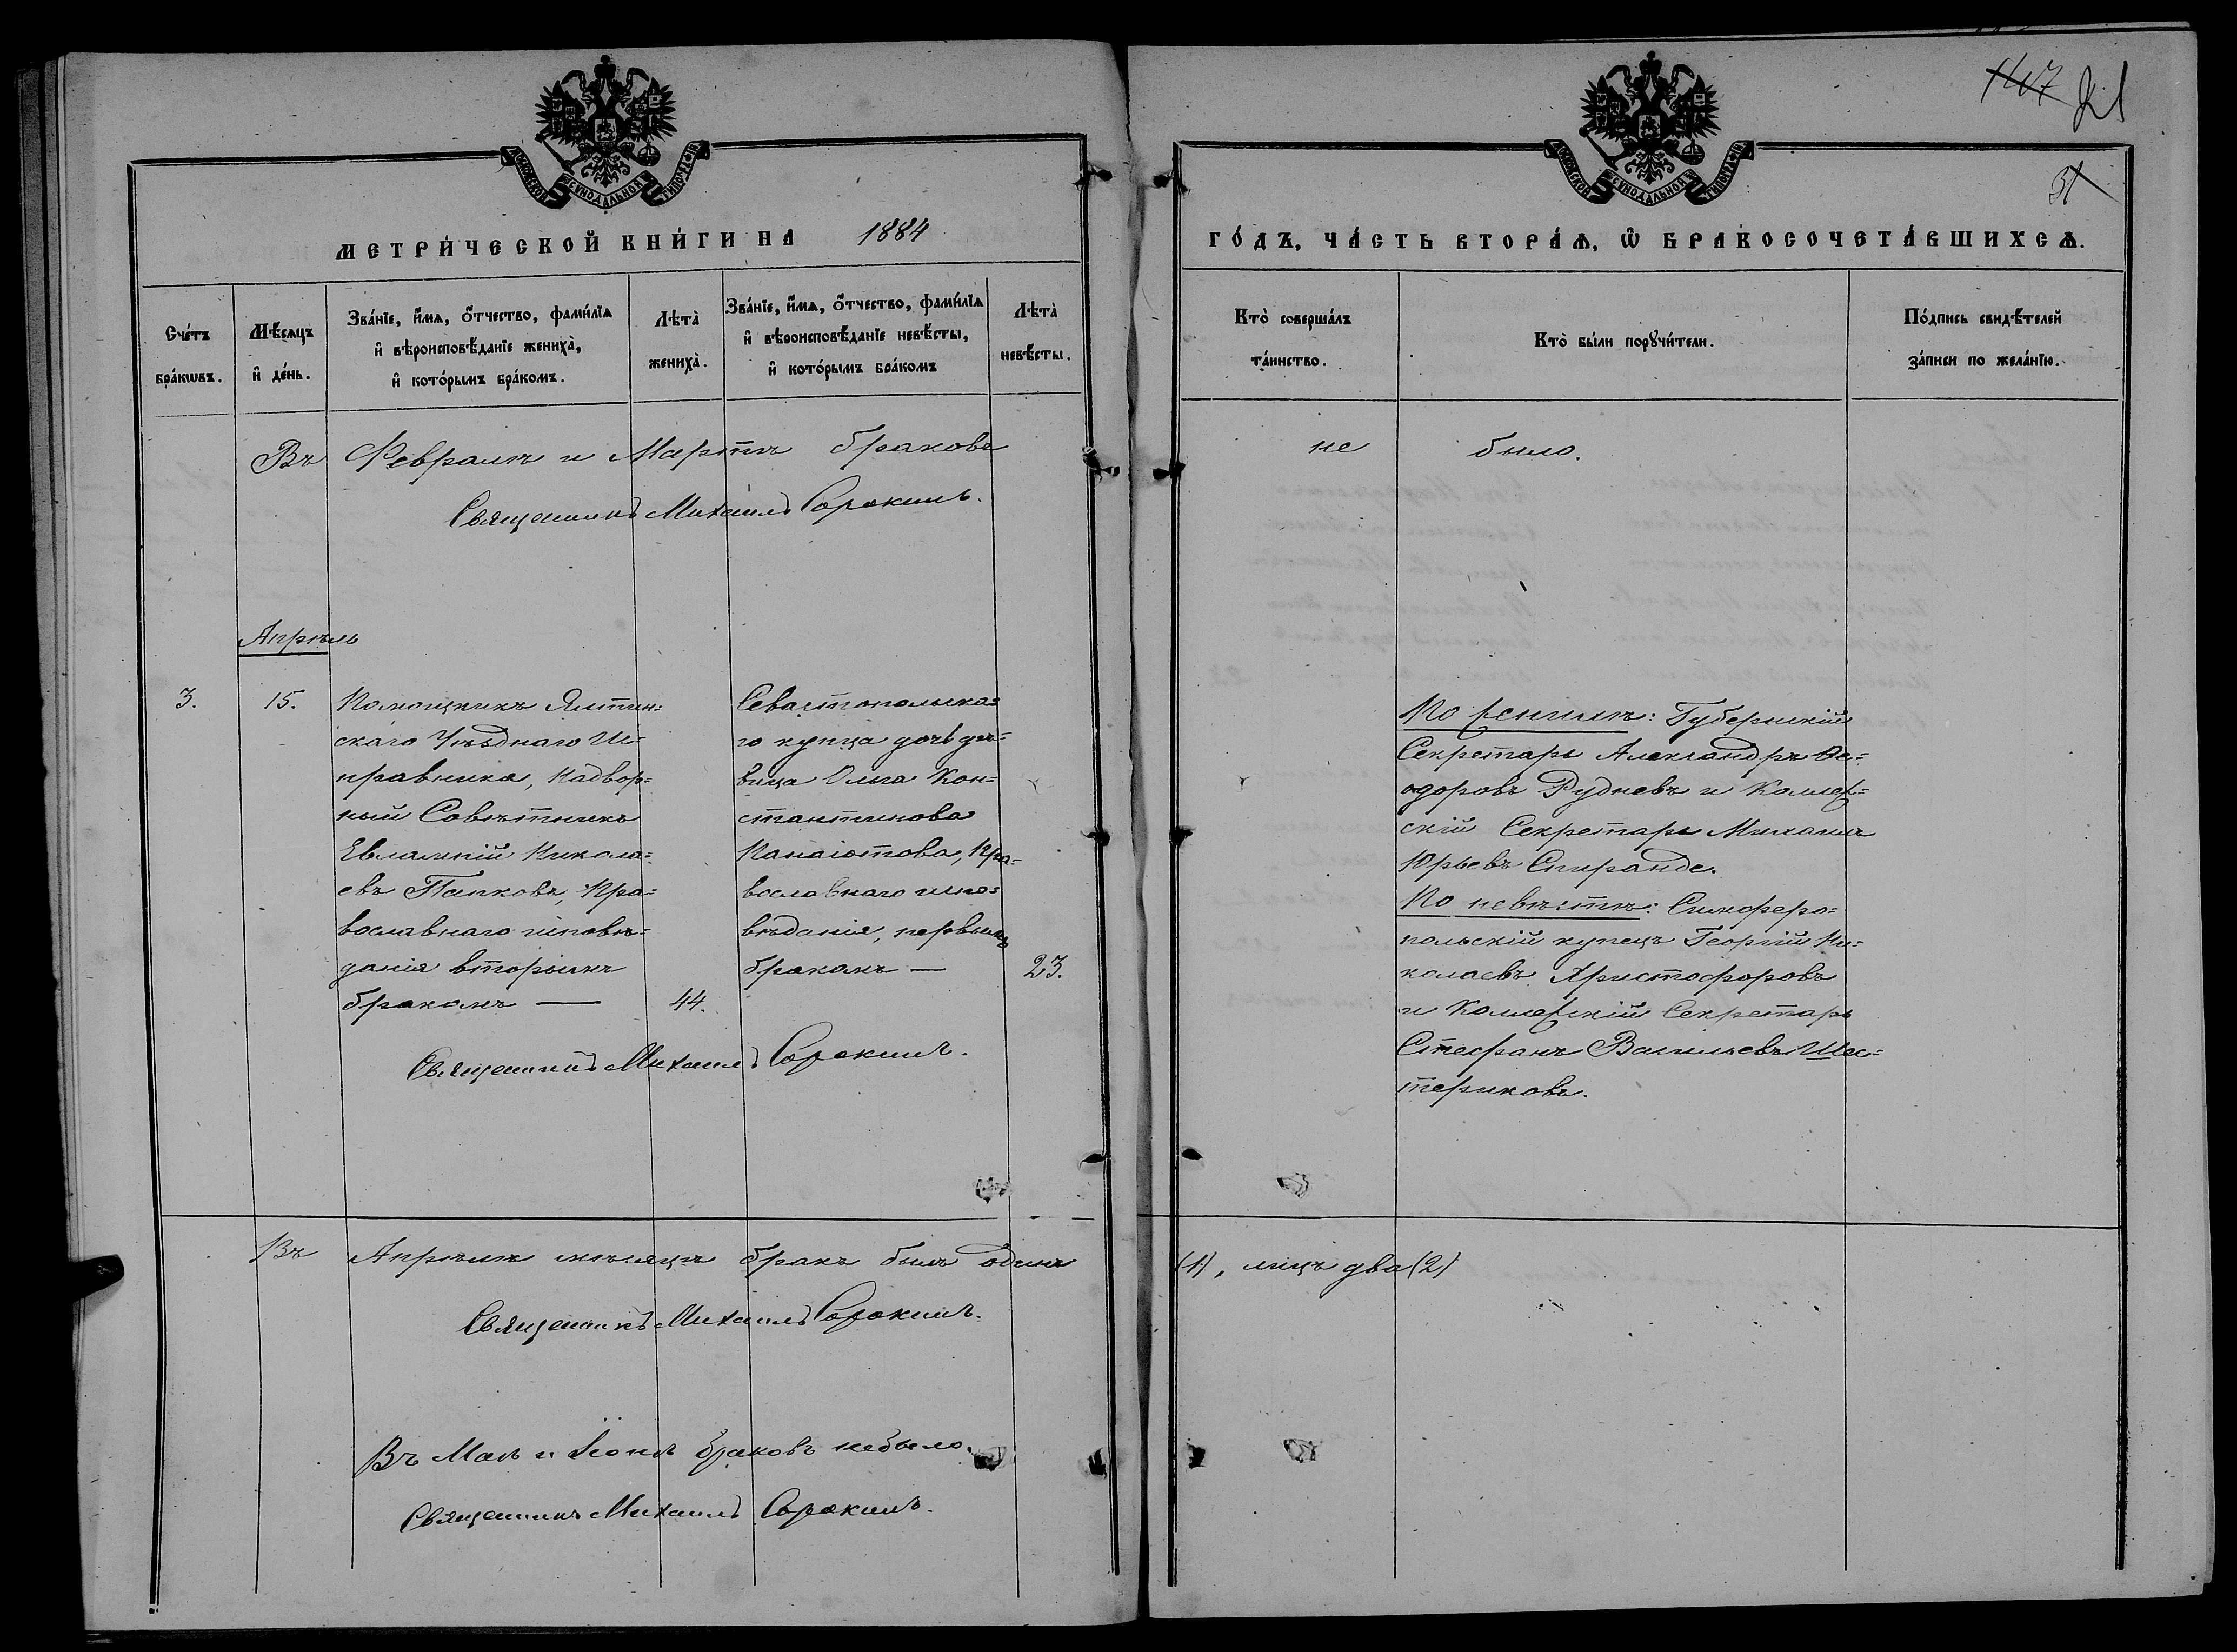 1107 21
31
МОСКОВСКОЙ СѴНОДАЛЬНОЙ ТИПОГРАФІИ
МОСКОВСКОЙ СѴНОДАЛЬНОЙ ТИПОГРАФІИ
МЕТРИ́ЧЕСКОЙ КНИ́ГИ НА 1884
ГО́ДЪ, ЧА́СТЬ ВТОРА́Ѧ, Ѽ БРАКОСОЧЕТА́ВШИХСѦ.
Сче́тъ бра́кѡвъ.
Мѣ́сяцъ и҆ де́нь.
Зва́нїе, и҆́мѧ, ѻ҆́тчество, фами́лїѧ
и҆ вѣроисповѣ́данїе жениха̀,
и҆ кото́рымъ бра́комъ.
Лѣта̀ жениха̀.
Зва́нїе, и҆́мѧ, ѻ҆́тчество, фами́лїѧ
и҆ вѣроисповѣ́данїе невѣ́сты,
и҆ кото́рымъ бра́комъ
Лѣта̀ невѣ́сты.
Кто̀ соверша́лъ
та́инство.
Кто̀ бы́ли порꙋчи́тели.
По́дпись свидѣ́телей
за́писи по жела́нїю.
Въ Февралѣ и Мартѣ браковъ не было.
Священникъ Михаилъ Сорокинъ.
Апрѣль
3. 15. Помощникъ Ялтин=
скаго Уѣзднаго Ис=
правника, Надвор=
ный Совѣтникъ
Евлампій Никола=
евъ Папковъ, Пра=
вославнаго исповѣ=
данія вторымъ
бракомъ — 44.
Севастопольска=
го купца дочь дѣ=
вица Ольга Кон=
стантинова
Панаіотова, Пра=
вославнаго испо=
вѣданія, первымъ
бракомъ — 23.
По женихѣ: Губернскій
Секретарь Александръ Ѳе=
одоровъ Рудневъ и Коллеж=
скій Секретарь Михаилъ
Юрьевъ Спиранде.
По невѣстѣ: Симферо=
польскій купецъ Георгій Ни=
колаевъ Христофоровъ
и Коллежскій Секретарь
Стефанъ Васильевъ Шес=
териковъ.
Священникъ Михаилъ Сорокинъ.
Въ Апрѣлѣ мѣсяцѣ бракъ былъ одинъ (1), лицъ два (2)
Священникъ Михаилъ Сорокинъ.
Въ Маѣ и Іюнѣ браковъ небыло.
Священникъ Михаилъ Сорокинъ.